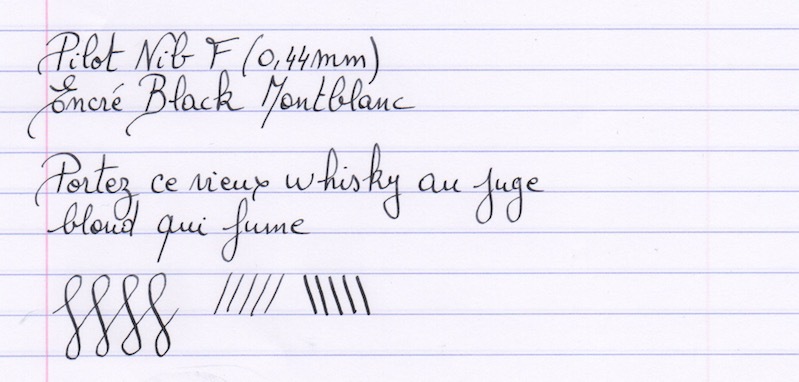 Pilot Nib F (0,44mm)
Encré Black Montblanc
Portez ce vieux whisky au juge
blond qui fume